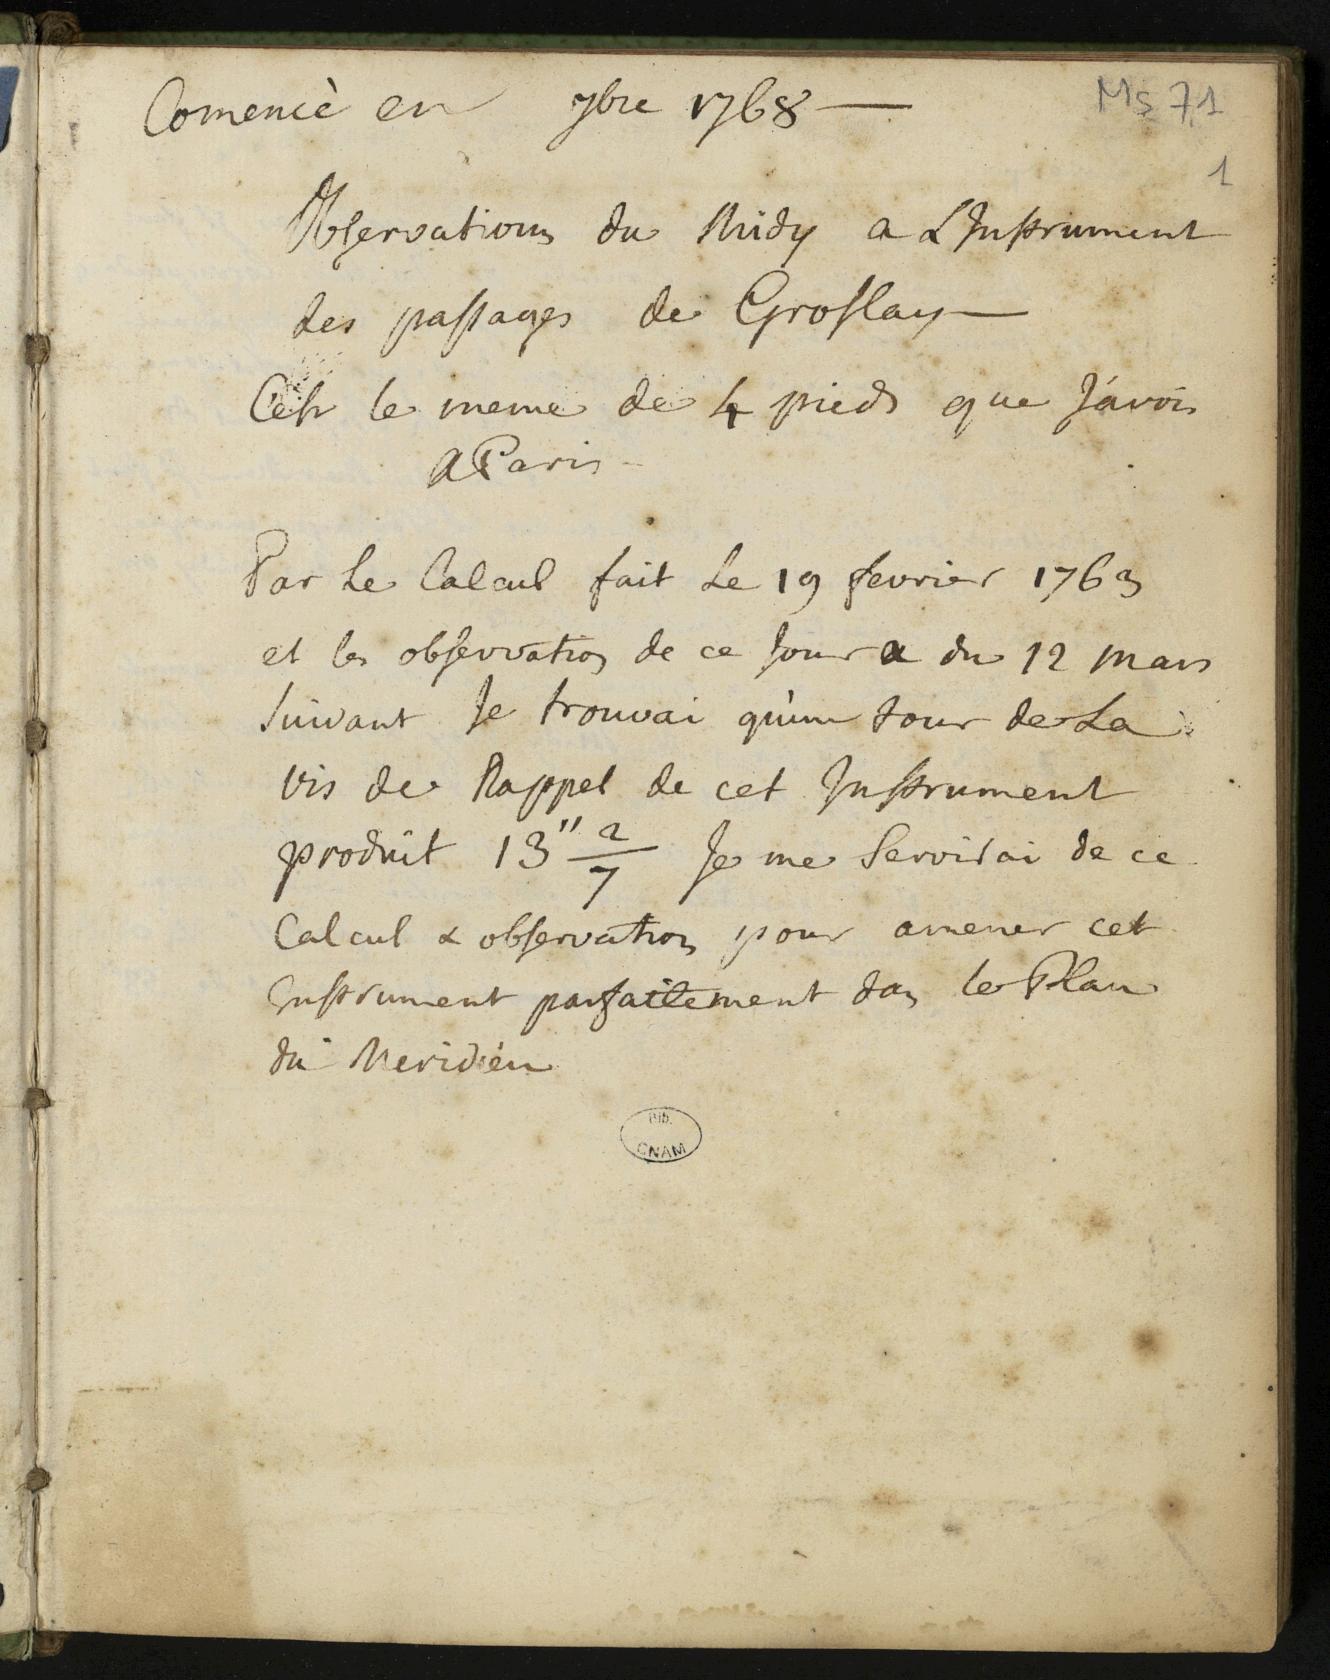 Comencè en 7bre 1768 —
Ms 71
1
Observations du Midy a L'Instrument
des passages de Groslay —
C'est le meme de 4 pieds que J'avois
A Paris
Par Le Calcul fait Le 19 fevrier 1763
et les observations de ce Jour & du 12 Mars
Suivant Je trouvai qu'un tour de La
Vis de Rappel de cet Instrument
produit 13" 2/7 Je me Servirai de ce
Calcul & observation pour amener cet
Instrument parfaitement dans le Plan
du Meridien
Bib.
CNAM